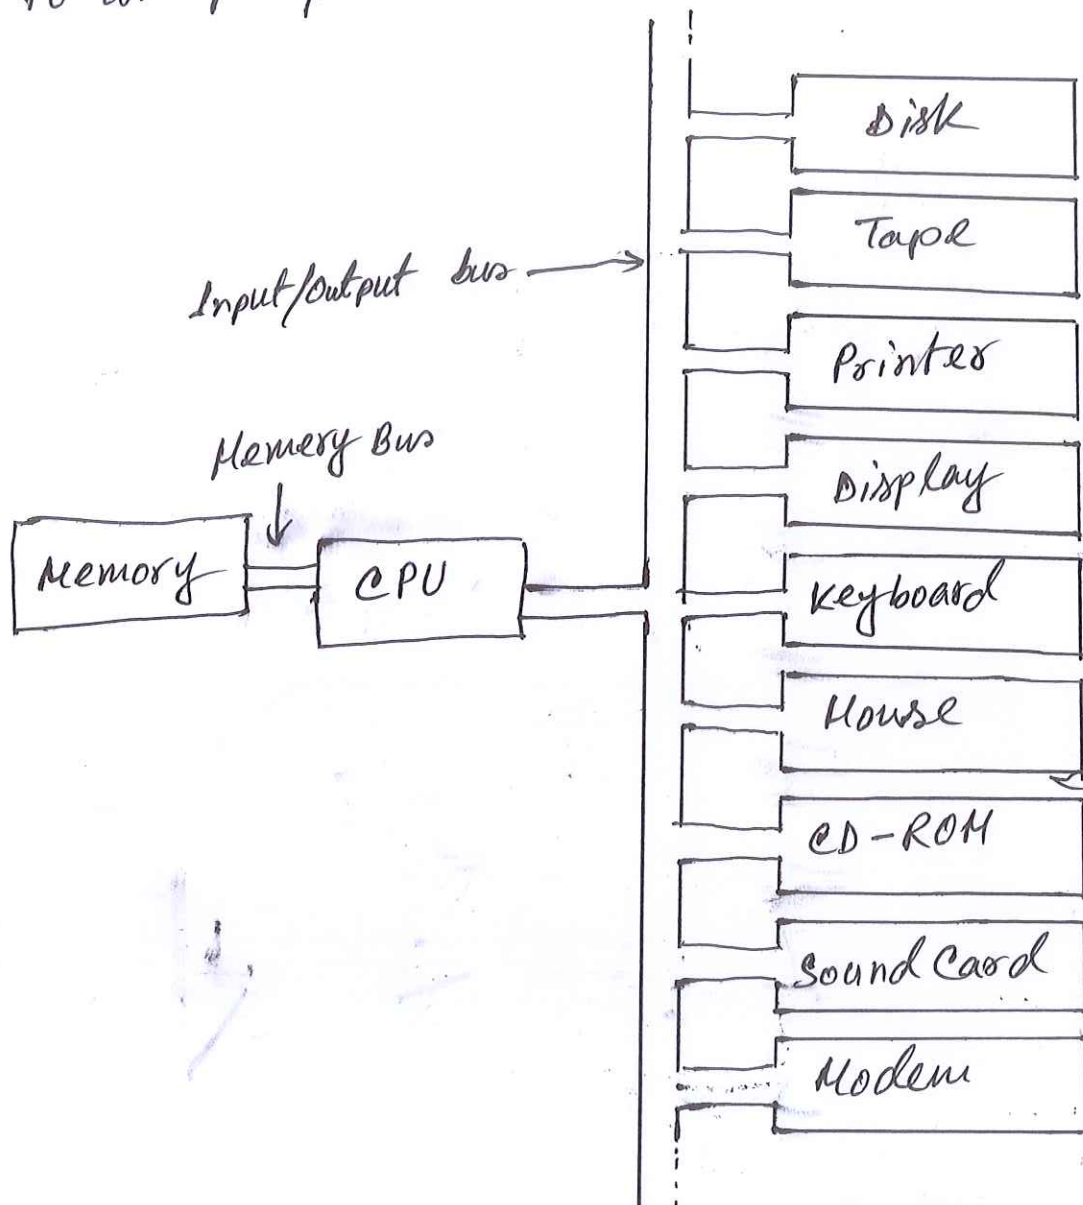 Disk
Tape
Input/Output bus
Printer
Memory Bus
Display
Memory
CPU
Keyboard
Mouse
CD-ROM
Sound Card
Modem